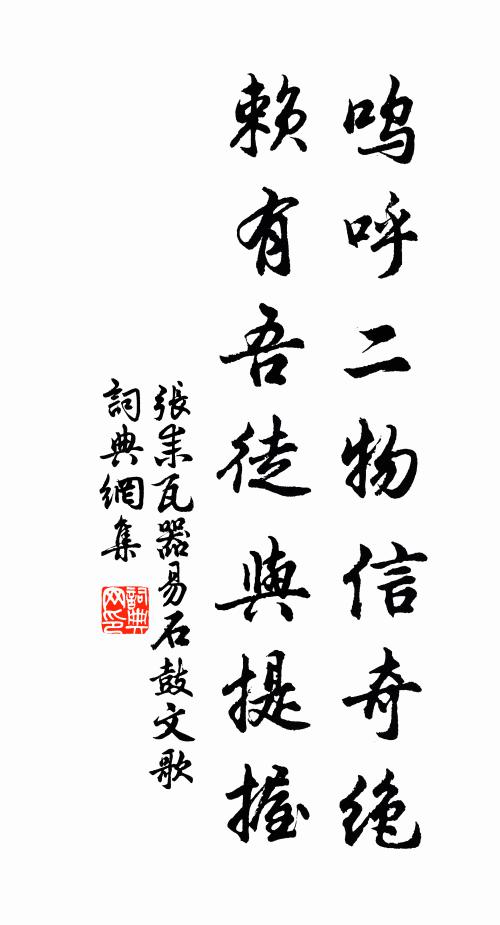 嗚呼二物信奇絶
賴有吾徒與提握
張耒瓦器易石鼓文歌
詞典網集
詞典网印